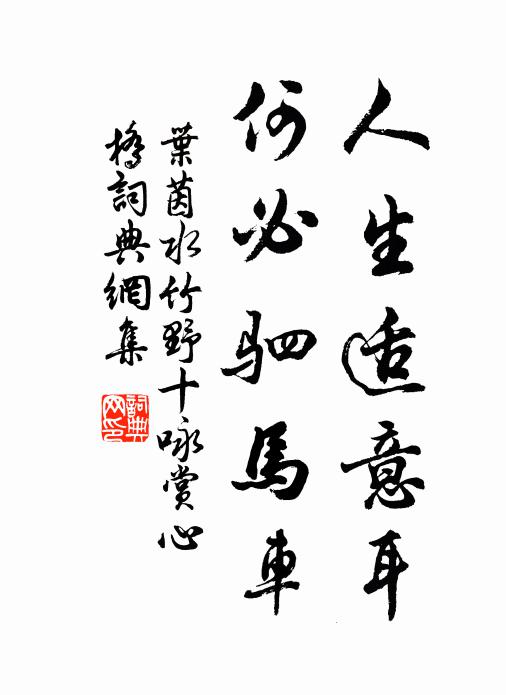 人生适意耳
何必驷馬車
葉茵水竹野十咏賞心
橋詞典網集
詞典
网印